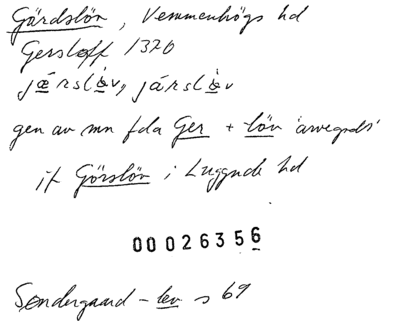 Gärdslöv, Vemmenhögs hd
Gersloff 1320
jæ̀rslèv, járslèv
gen av mn fda Ger + löv 'arvegods'
jf Görslöv i Luggude hd
00026356
Søndergaard - lev s 69